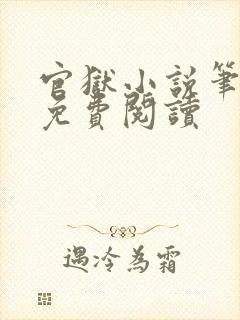 官獄小說筆
免費閱讀
遇冷為霜